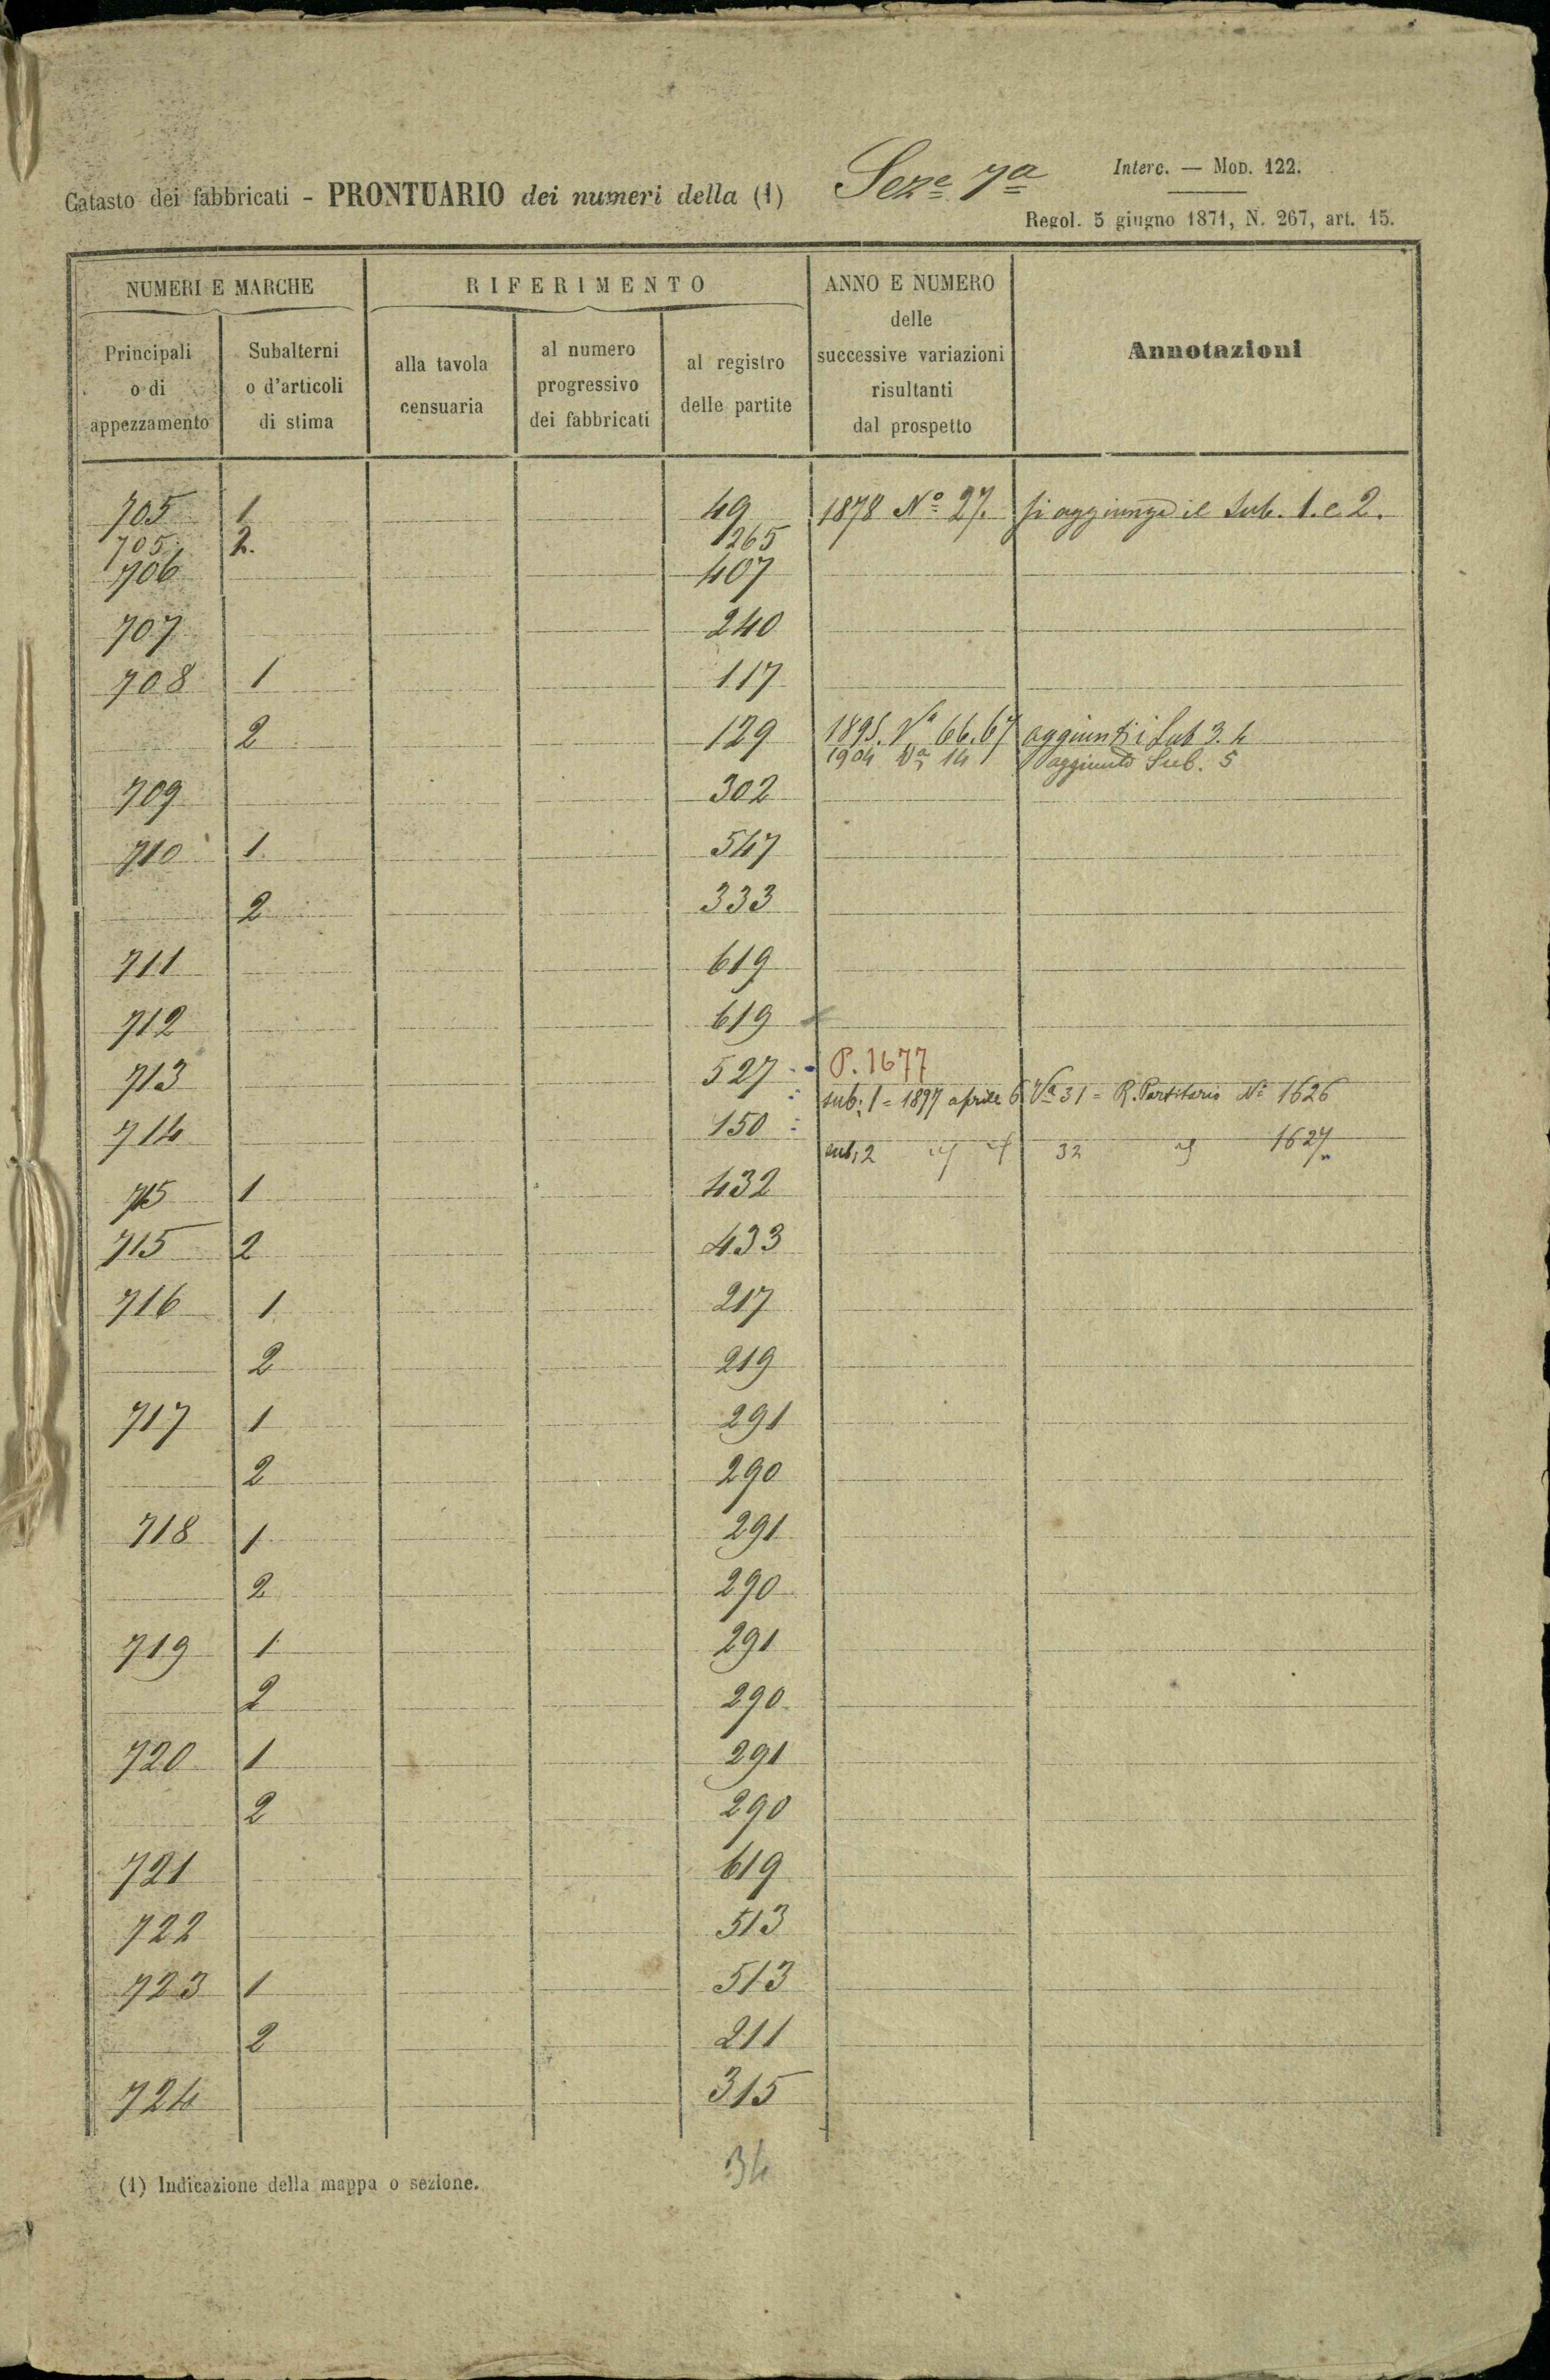 Catasto dei fabbricati - PRONTUARIO dei numeri della (1) Seze 7a
Interc. — Mod. 122.
Regol. 5 giugno 1871, N. 267, art. 15.
NUMERI E MARCHE
RIFERIMENTO
ANNO E NUMERO
delle
successive variazioni
risultanti
dal prospetto
Annotazioni
Principali
o di
appezzamento
Subalterni
o d'articoli
di stima
alla tavola
censuaria
al numero
progressivo
dei fabbricati
al registro
delle partite
705 1 49 1878 No 27. si aggiunge il Sub. 1. e 2.
705 2. 1265
706 407
707 240
708 1 117
2 129 1895. Na 66.67 aggiunti i Sub 3. 4
1904 Va 14 aggiunto Sub. 5
709 302
710 1 547
2 333
711 619
712 619
713 527 P. 1677
sub. 1 = 1897 aprile 6 Va 31 = R. Partitario No 1626
714 150
sub. 2 32 1627
715 1 432
715 2 433
716 1 217
2 219
717 1 291
2 290
718 1 291
2 290
719 1 291
2 290
720 1 291
2 290
721 619
722 513
723 1 513
2 211
724 315
34
(1) Indicazione della mappa o sezione.